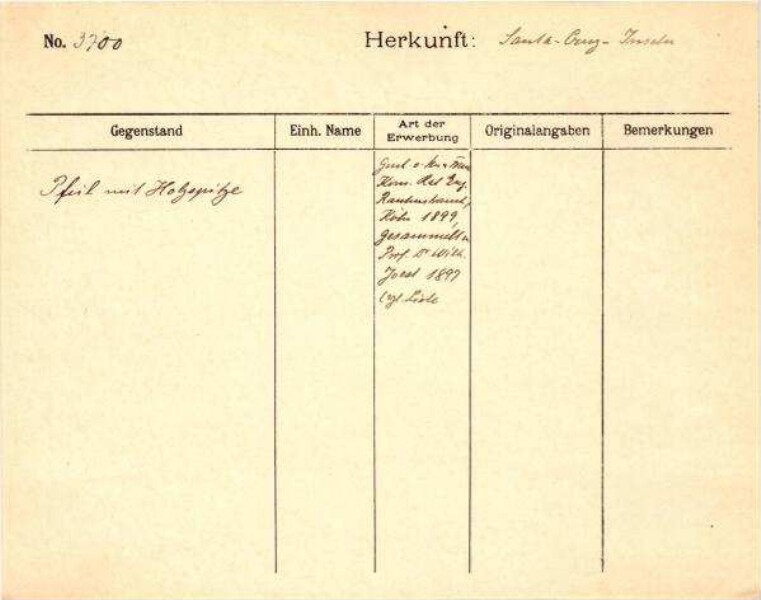 No. 3700 Herkunft: Santa-Cruz-Inseln
Gegenstand Einh. Name Art der Erwerbung Originalangaben Bemerkungen
Pfeil mit Holzspitze
Kom. Rat Eug.
Rautenstrauch,
Köln 1899,
gesammelt v.
Prof. Dr Wilh.
Joest 1897
vgl. Liste